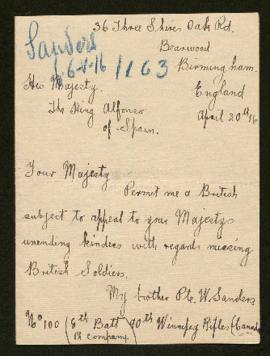 36 Three Shires Oak Rd.
Bearwood
Sanders
6-4-16/163
Birmingham.
His Majesty.
England
The King Alfonso
April 20th 16
of Spain.
Your Majesty
Permit me a British
subject to appeal to your Majestys
unending kindness with regards missing
British Soldiers.
My brother Pte. W. Sanders
No 100 (8th Batt 90th Winnipeg Rifles (Canada
company)